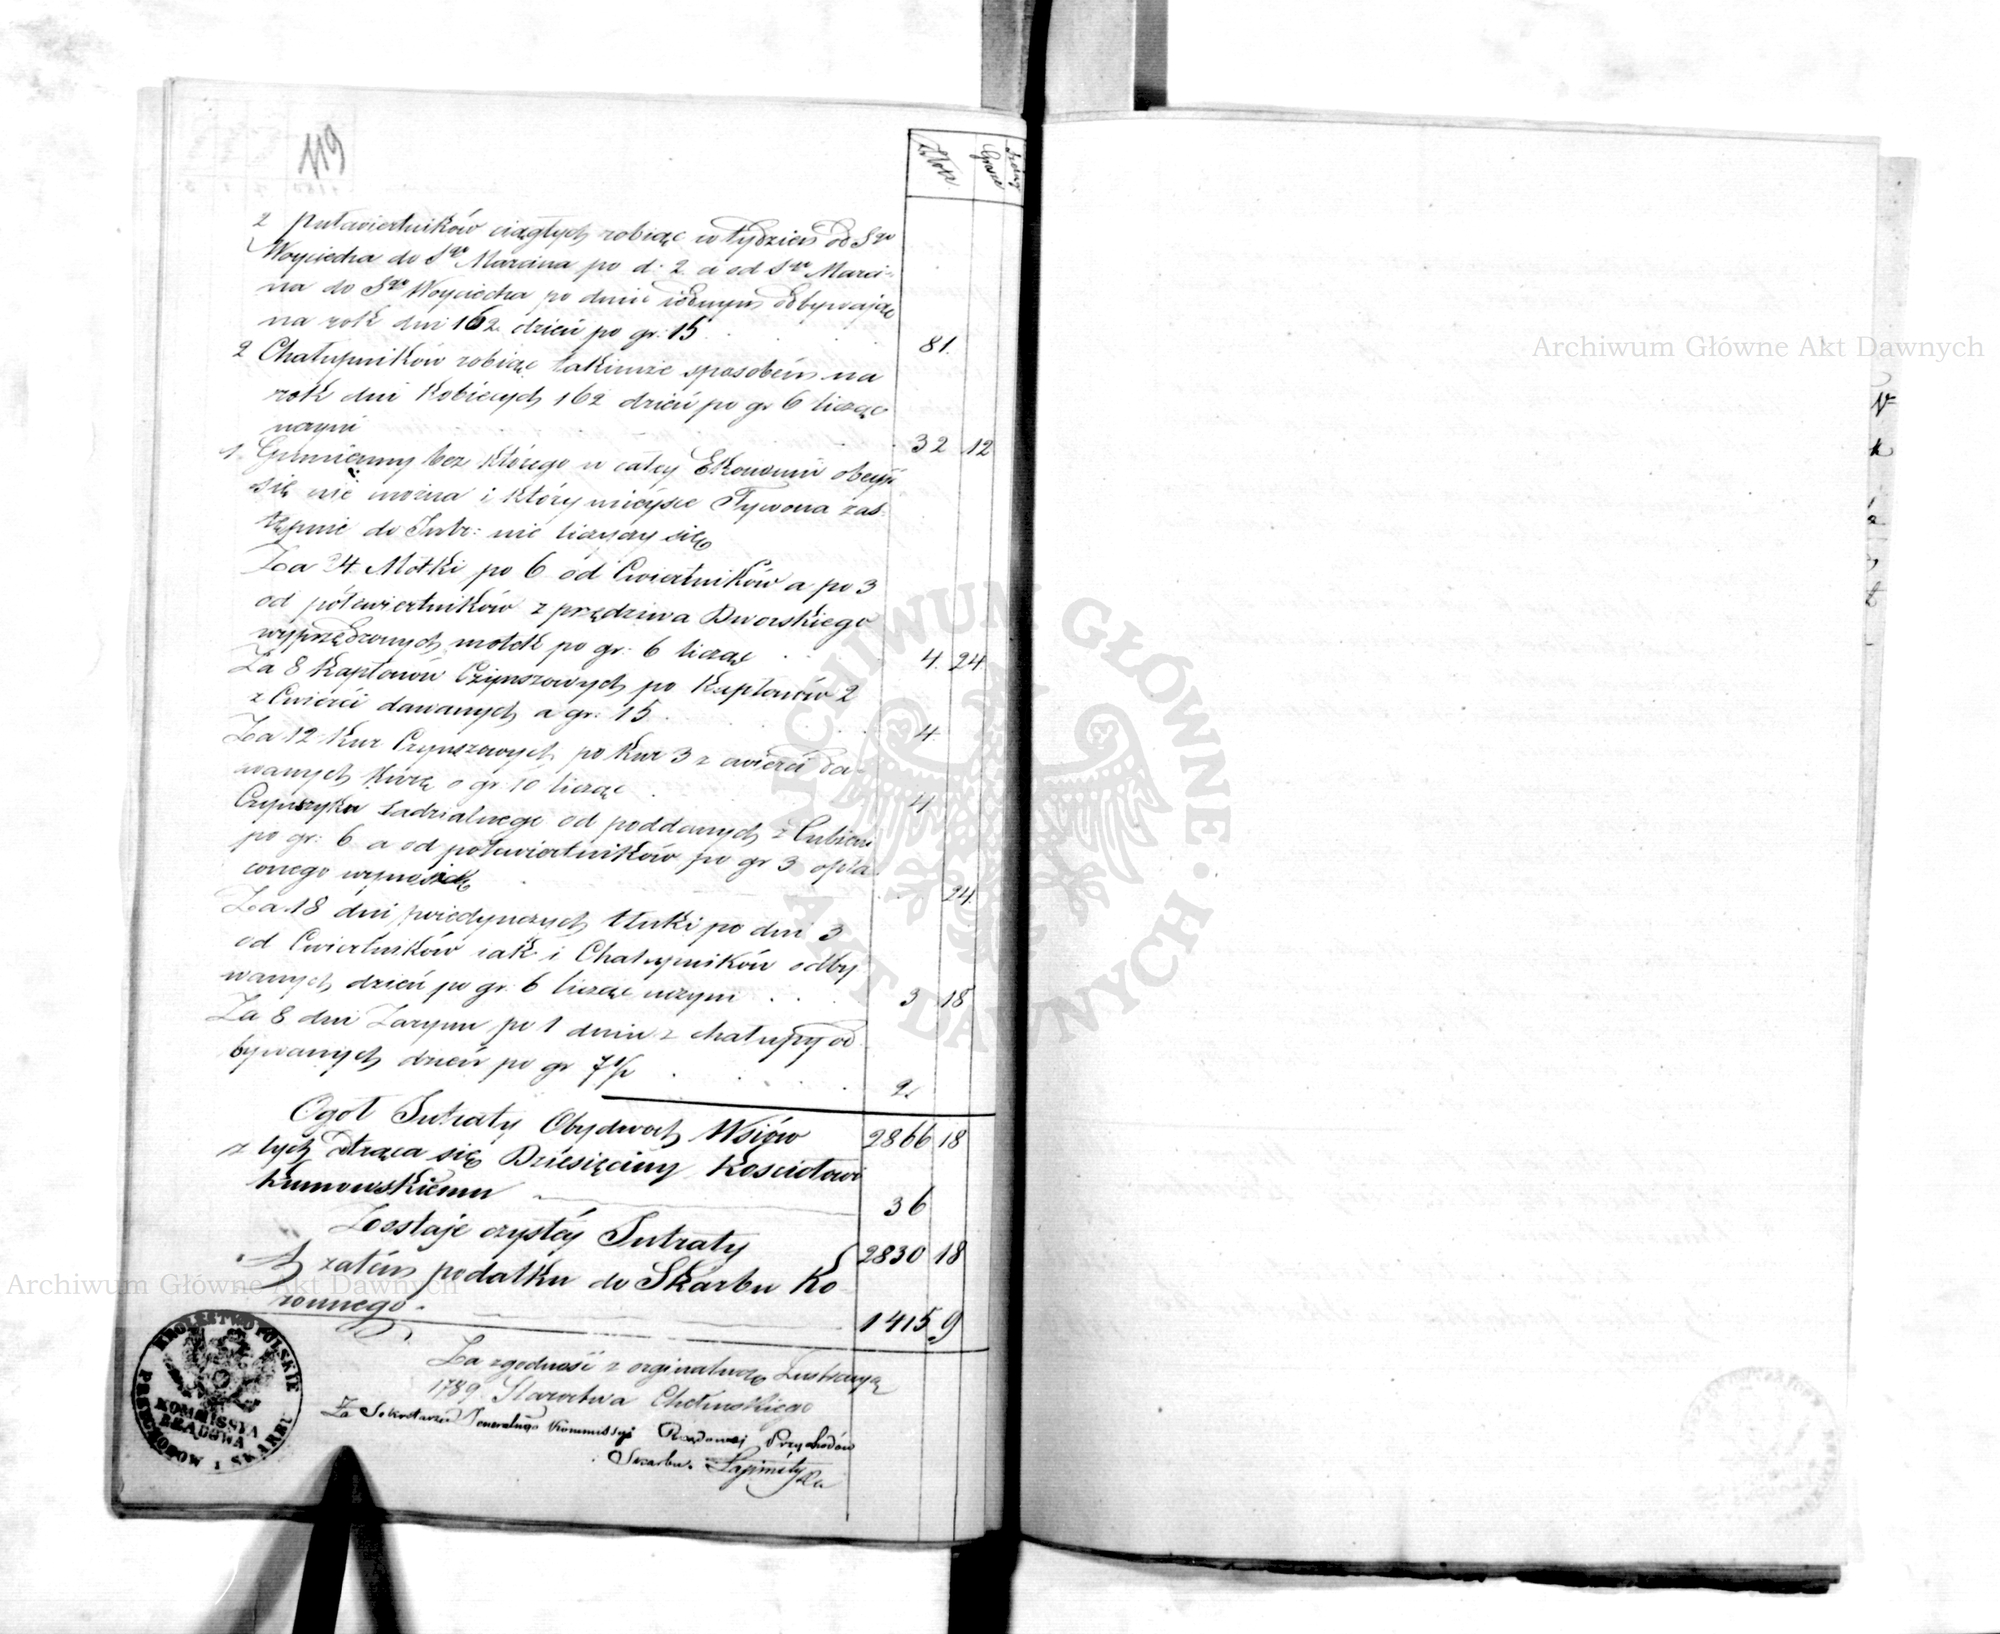 119
Złote Grosze Szelągi
2 Pułcwiertników ciągłych robiąc w tydzień od Sgo
Woyciecha do Sgo Marcina po d: 2 a od Sgo Marci-
na do Sgo Woyciecha po dniu iednym odbywając
na rok dni 162 dzień po gr: 15 81.
2 Chałupników robiąc takimże sposobem na
rok dni kobiecych 162 dzień po gr 6 licząc
uczyni 32 12
1 Gumienny bez którego w całey Ekonomii obeyść
się nie można i który mieysce Tywona zas-
tępuie do Intr: nie liczony się
Za 24 Motki po 6 od Cwiertników a po 3
od półcwiertników z przędziwa Dworskiego
wyprzędzonych motek po gr: 6 licząc 4. 24.
Za 8 Kapłonów Czynszowych po Kapłonów 2
z Cwierci dawanych a gr: 15 4
Za 12 Kur Czynszowych po Kur 3 z cwierci da-
wanych Kurę a gr 10 licząc 4
Czynszyku Sadzialnego od poddanych z
po gr: 6 a od półcwiertników po gr 3 opła-
conego wynosi 24.
Za 18 dni powiedynczych tłuki po dni 3
od Cwiertników iak i Chałupników odby
wanych dzień po gr: 6 licząc uczyni 3 18
Za 8 dni Zarynu po 1 dniu z chałupy od
bywanych dzień po gr 7½ 2.
Ogół Intraty Obydwoch Wsiów 2866 18
z tych Strąca się Dziesięciny Kościołowi
Kumowskiemu 36
Zostaje czystey Intraty 2830 18
A zatem podatku do Skarbu Ko-
ronnego. 1415 9
Za zgodność z orginalną Lustracyą
1789. Starostwa Chełmskiego
Za Sekretarza Jeneralnego Kommissyi Rządowej Przychodów
i Skarbu.
KROLESTWO POLSKIE
KOMMISSYA
RZĄDOWA
PRZYCHODOW I SKARBU
ARCHIWUM GŁÓWNE
AKT DAWNYCH
Archiwum Główne Akt Dawnych
Archiwum Główne Akt Dawnych